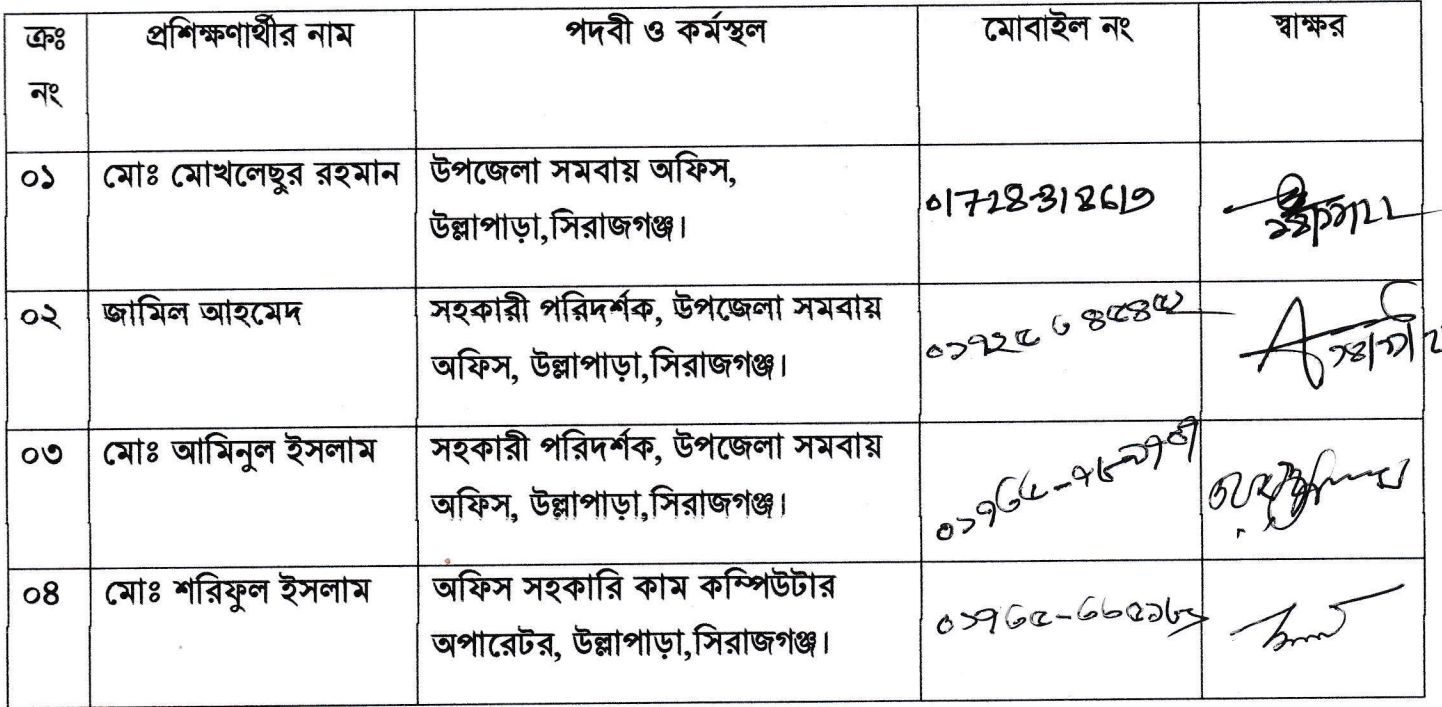 ক্রঃ নং প্রশিক্ষণার্থীর নাম পদবী ও কর্মস্থল মোবাইল নং স্বাক্ষর
০১ মোঃ মোখলেছুর রহমান উপজেলা সমবায় অফিস,
উল্লাপাড়া,সিরাজগঞ্জ।
০২ জামিল আহমেদ সহকারী পরিদর্শক, উপজেলা সমবায়
অফিস, উল্লাপাড়া,সিরাজগঞ্জ।
০৩ মোঃ আমিনুল ইসলাম সহকারী পরিদর্শক, উপজেলা সমবায়
অফিস, উল্লাপাড়া,সিরাজগঞ্জ।
০৪ মোঃ শরিফুল ইসলাম অফিস সহকারি কাম কম্পিউটার
অপারেটর, উল্লাপাড়া,সিরাজগঞ্জ।